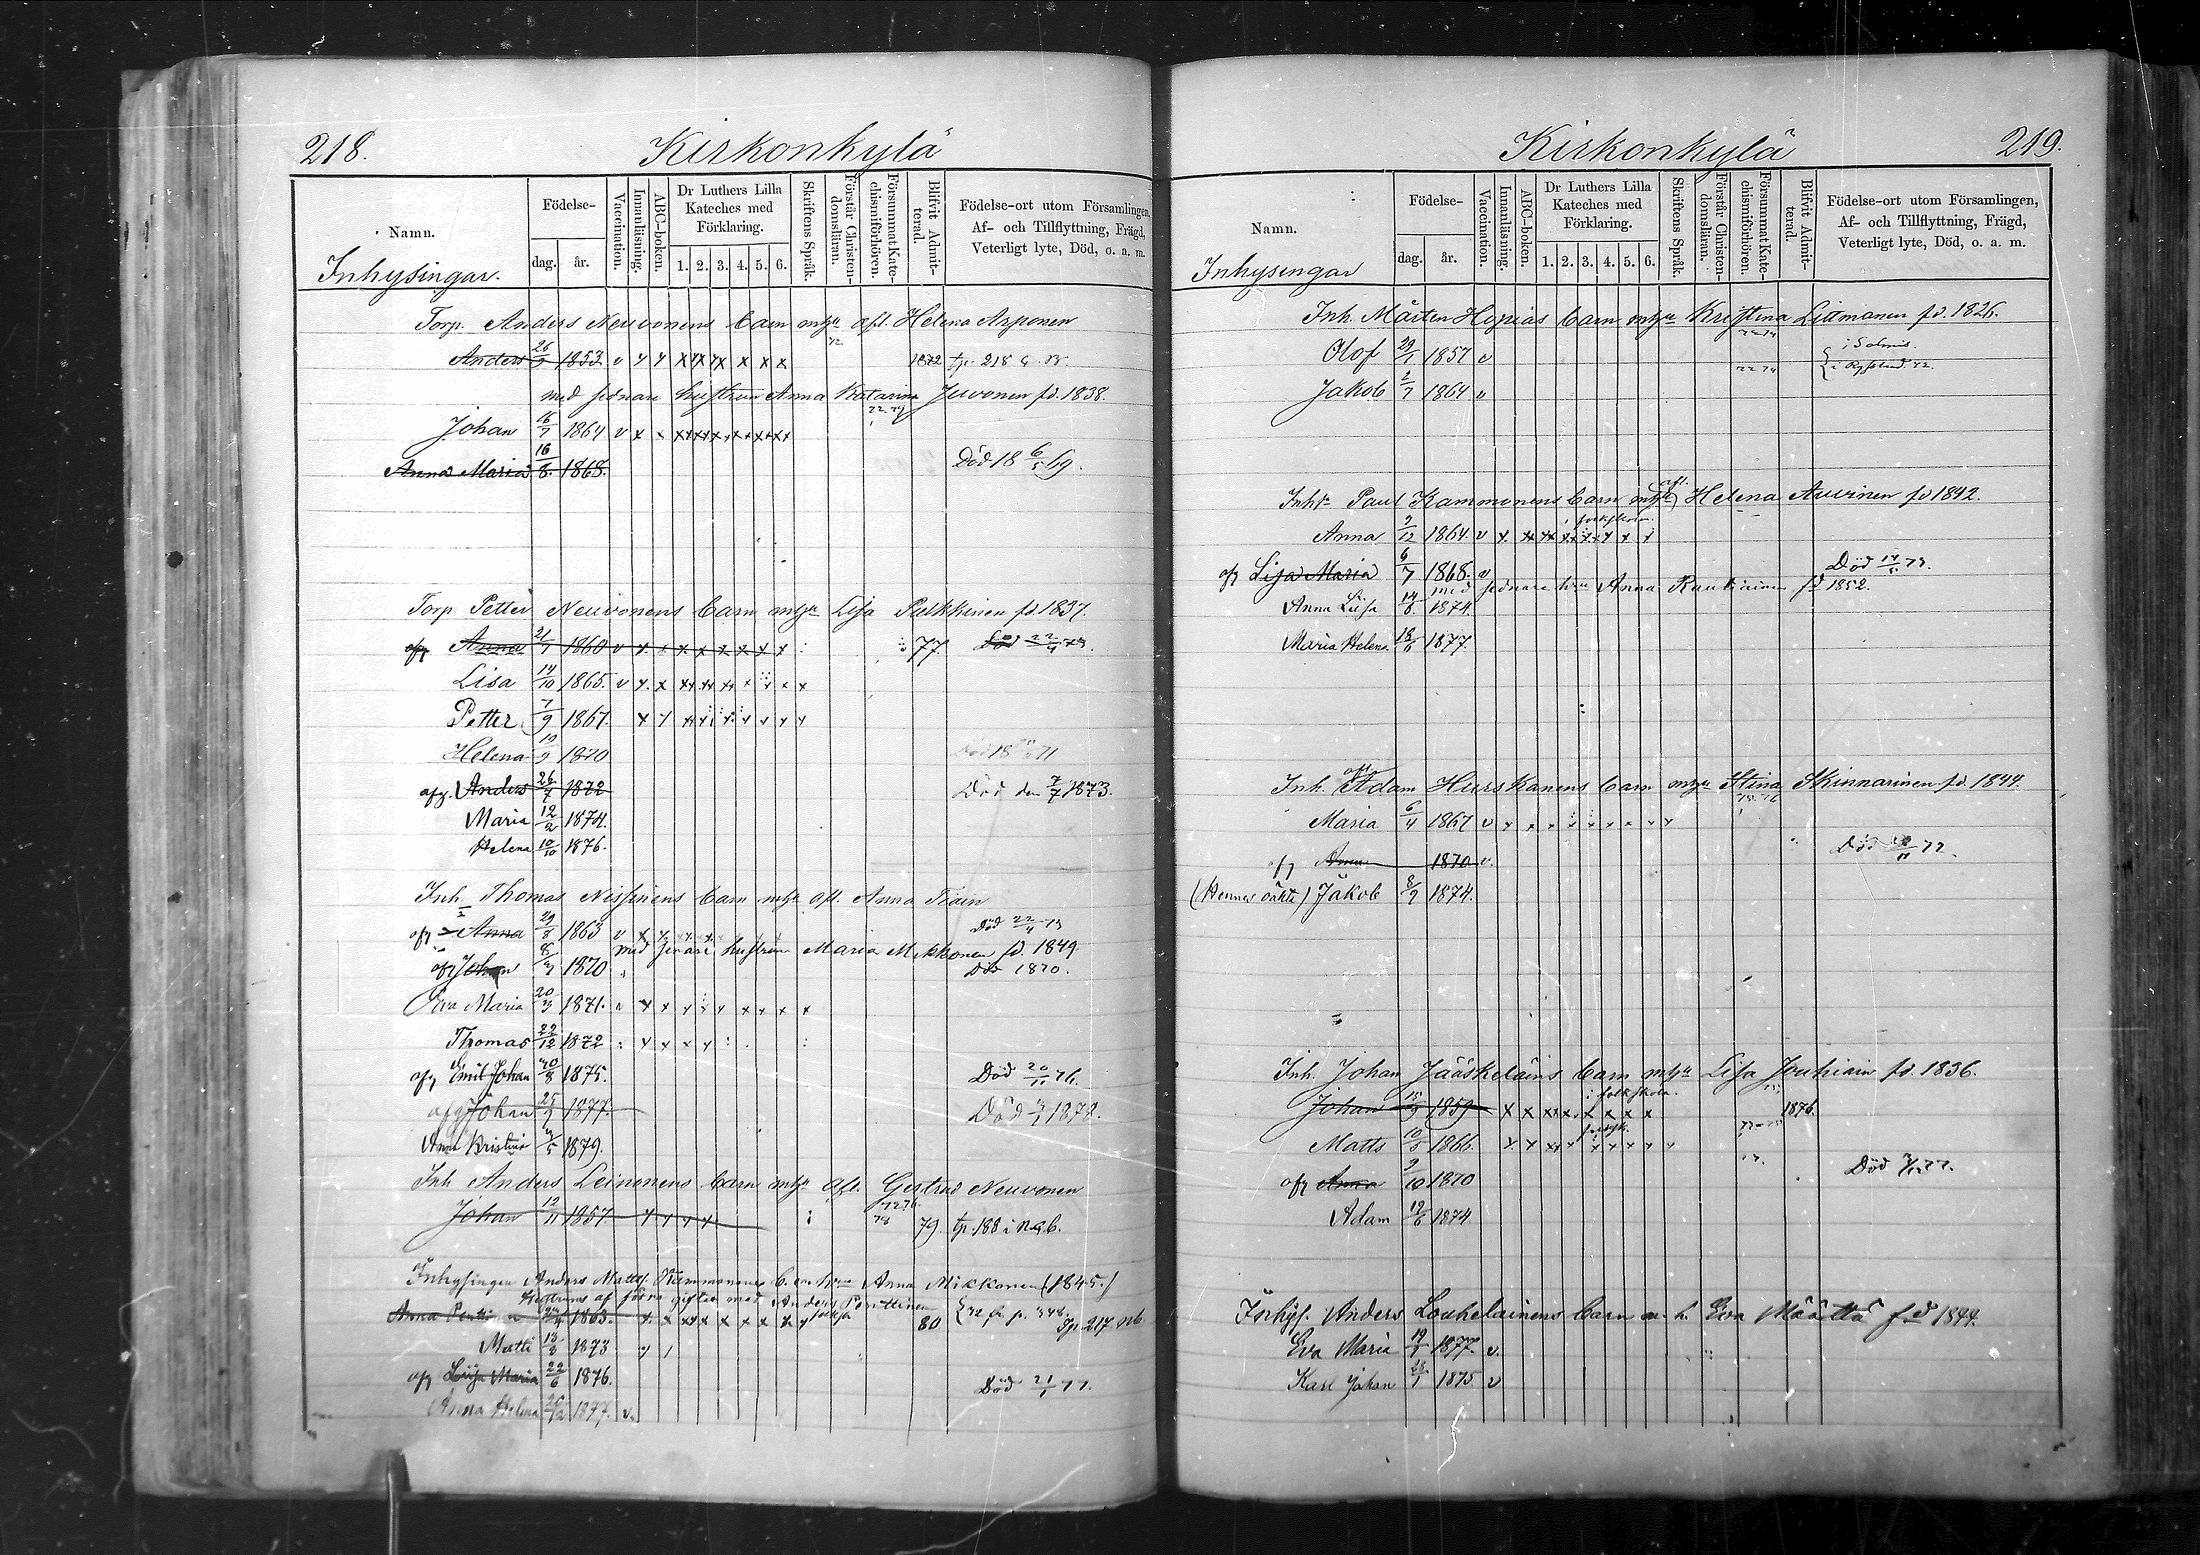 218.
Kirkonkylä
Namn.
Inhysingar.
Födelse-
dag.
år.
Vaccination.
Innanläsning.
ABC-boken.
Dr Luthers Lilla
Kateches med
Förklaring.
1. 2. 3. 4. 5. 6.
Skriftens Språk.
Förstår Christen-
domsläran.
Försummat Kate-
chismiförhören.
Blifvit Admit-
terad.
Födelse-ort utom Församlingen,
Af- och Tillflyttning, Frägd,
Veterligt lyte, Död, o. a. m.
Torp. Anders Neuvonens barn m hu afl. Helena Arponen
Anders 26/9 1853. v 1872 tp. 218
med sednare hustrun Anna Katarina Juvonen fd. 1838.
Johan 16/7 1864 v
Anna Maria 16/8 1868. Död 18 6/5 69.
Torp Petter Neuvonens barn m hu Lisa Pulkkinen fd. 1837.
afg Anna 21/7 1860 v 77 Död 22/4 73.
Lisa 14/10 1865. v
Petter 7/9 1867.
Helena 19/9 1870 Död 18 71
afg. Anders 26/7 1872 Död den 7/7 1873.
Maria 12/2 1874.
Helena 10/10 1876.
Inh Thomas Nissinens barn m hu afl. Anna Tiain
afg Anna 29/8 1863 v Död 22/4 73
med senare hustrun Maria Mikkonen fd. 1849
afg Johan 1870 Död 1870.
Eva Maria 20/3 1871.
Thomas 22/12 1872
afg Emil Johan 30/8 1875. Död 20/11 76.
afg Johan 25/7 1877. Död 1878.
Anna Kristina 1879.
Inh Anders Leinonens barn m hu afl. Gertrud Neuvonen
Johan 12/11 1857 79 tp. 188 i N.a b.
Inhysingen Anders Matts. Kammonens b. m hu Anna Mikkonen (1845.)
Hustruns af förra giftet med Anders Penttinen
Anna Penttinen 1863. 80 72 fr. p. 348. Tp. 217 nb
Matti 13/2 1873
afg Luisa Maria 22/6 1876. Död 21/1 77.
Anna Helena 26/12 1877. v.
219.
Kirkonkylä
Namn.
Inhysingar
Födelse-
dag.
år.
Vaccination.
Innanläsning.
ABC-boken.
Dr Luthers Lilla
Kateches med
Förklaring.
1. 2. 3. 4. 5. 6.
Skriftens Språk.
Förstår Christen-
domsläran.
Försummat Kate-
chismiförhören.
Blifvit Admit-
terad.
Födelse-ort utom Församlingen,
Af- och Tillflyttning, Frägd,
Veterligt lyte, Död, o. a. m.
Inh. Mårten Hyrias barn m hu Kristina Littmanen fd. 1826.
Olof 29/1 1857 v i Salmis.
Jakob 2/7 1864 v i Ryssland. 72.
Inh Paul Kammonens barn m hu afl. Helena Auvinen fd 1842.
Anna 9/12 1864. v folkskolan.
afg Lisa Maria 6/7 1868. v Död 14/5 73.
med sednare hu Anna Rautiainen fd 1852.
Anna Luisa 14/8 1874.
Maria Helena 18/6 1877.
Inh. Adam Hurskanens barn m hu Stina Skinnarinen fd. 1844.
Maria 6/4 1867 v
afg Anna 1870 v Död 72.
(Hennes oäkta) Jakob 8/9 1874.
Inh. Johan Jääskeläins barn m hu Lisa Jouhiain fd. 1836.
i folkskola.
Johan 15/9 1859 1876.
Matts 10/5 1866.
afg Anna 9/10 1870 Död 77.
Adam 19/6 1874.
Inhys. Anders Louhelainens barn m. h. Eva Määttä fd 1844.
Eva Maria 1877. v.
Karl Johan 1875 v